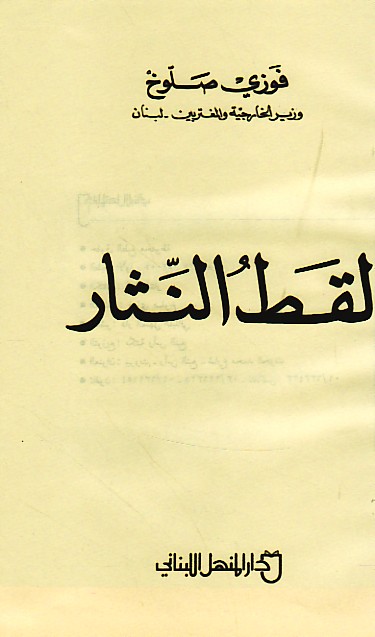 فوزي صلّوخ
وزير الخارجية والمغتربين - لبنان
لقطُ النّثار
دار المنهل اللبناني